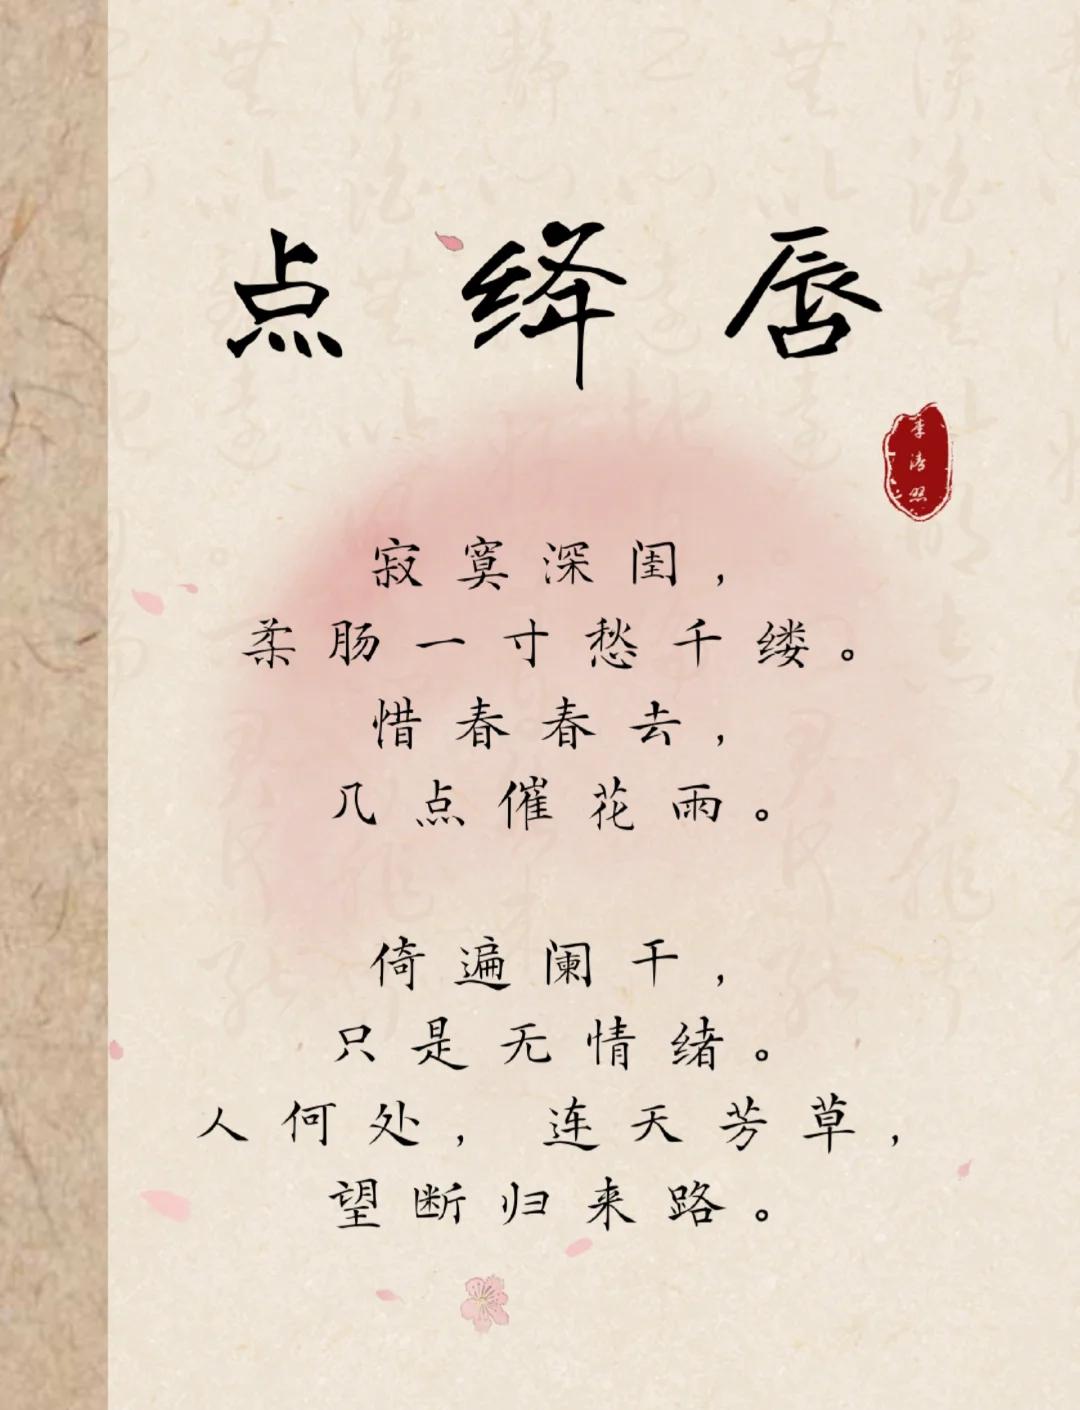 点绛唇
李清照
寂寞深闺，
柔肠一寸愁千缕。
惜春春去，
几点催花雨。
倚遍阑干，
只是无情绪。
人何处，连天芳草，
望断归来路。